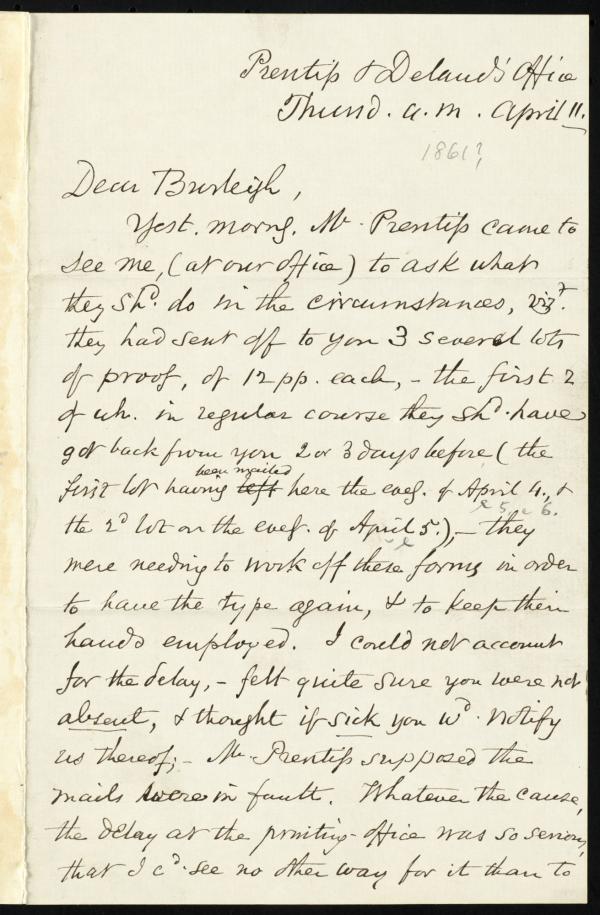 Prentiss & Deland's Office
Thursd. a.m. April 11.
1861?
Dear Burleigh,
Yest. morng. Mr. Prentiss came to
see me, (at our office) to ask what
they shd. do in the circumstances, vizt.
they had sent off to you 3 several lots
of proof, of 12 pp. each, - the first 2
of wh. in regular course they shd. have
got back from you 2 or 3 days before (the
first lot having left been mailed here the eveg. of April 4., &
the 2d lot on the eveg. of April 5.), - they
were needing to work off these forms in order
to have the type again, & to keep their
hands employed. I could not account
for the delay, - felt quite sure you were not
absent, & thought if sick you wd. notify
us thereof; - Mr. Prentiss supposed the
mails were in fault. Whatever the cause,
the delay at the printing-office was so serious,
that I cd. see no other way for it than to